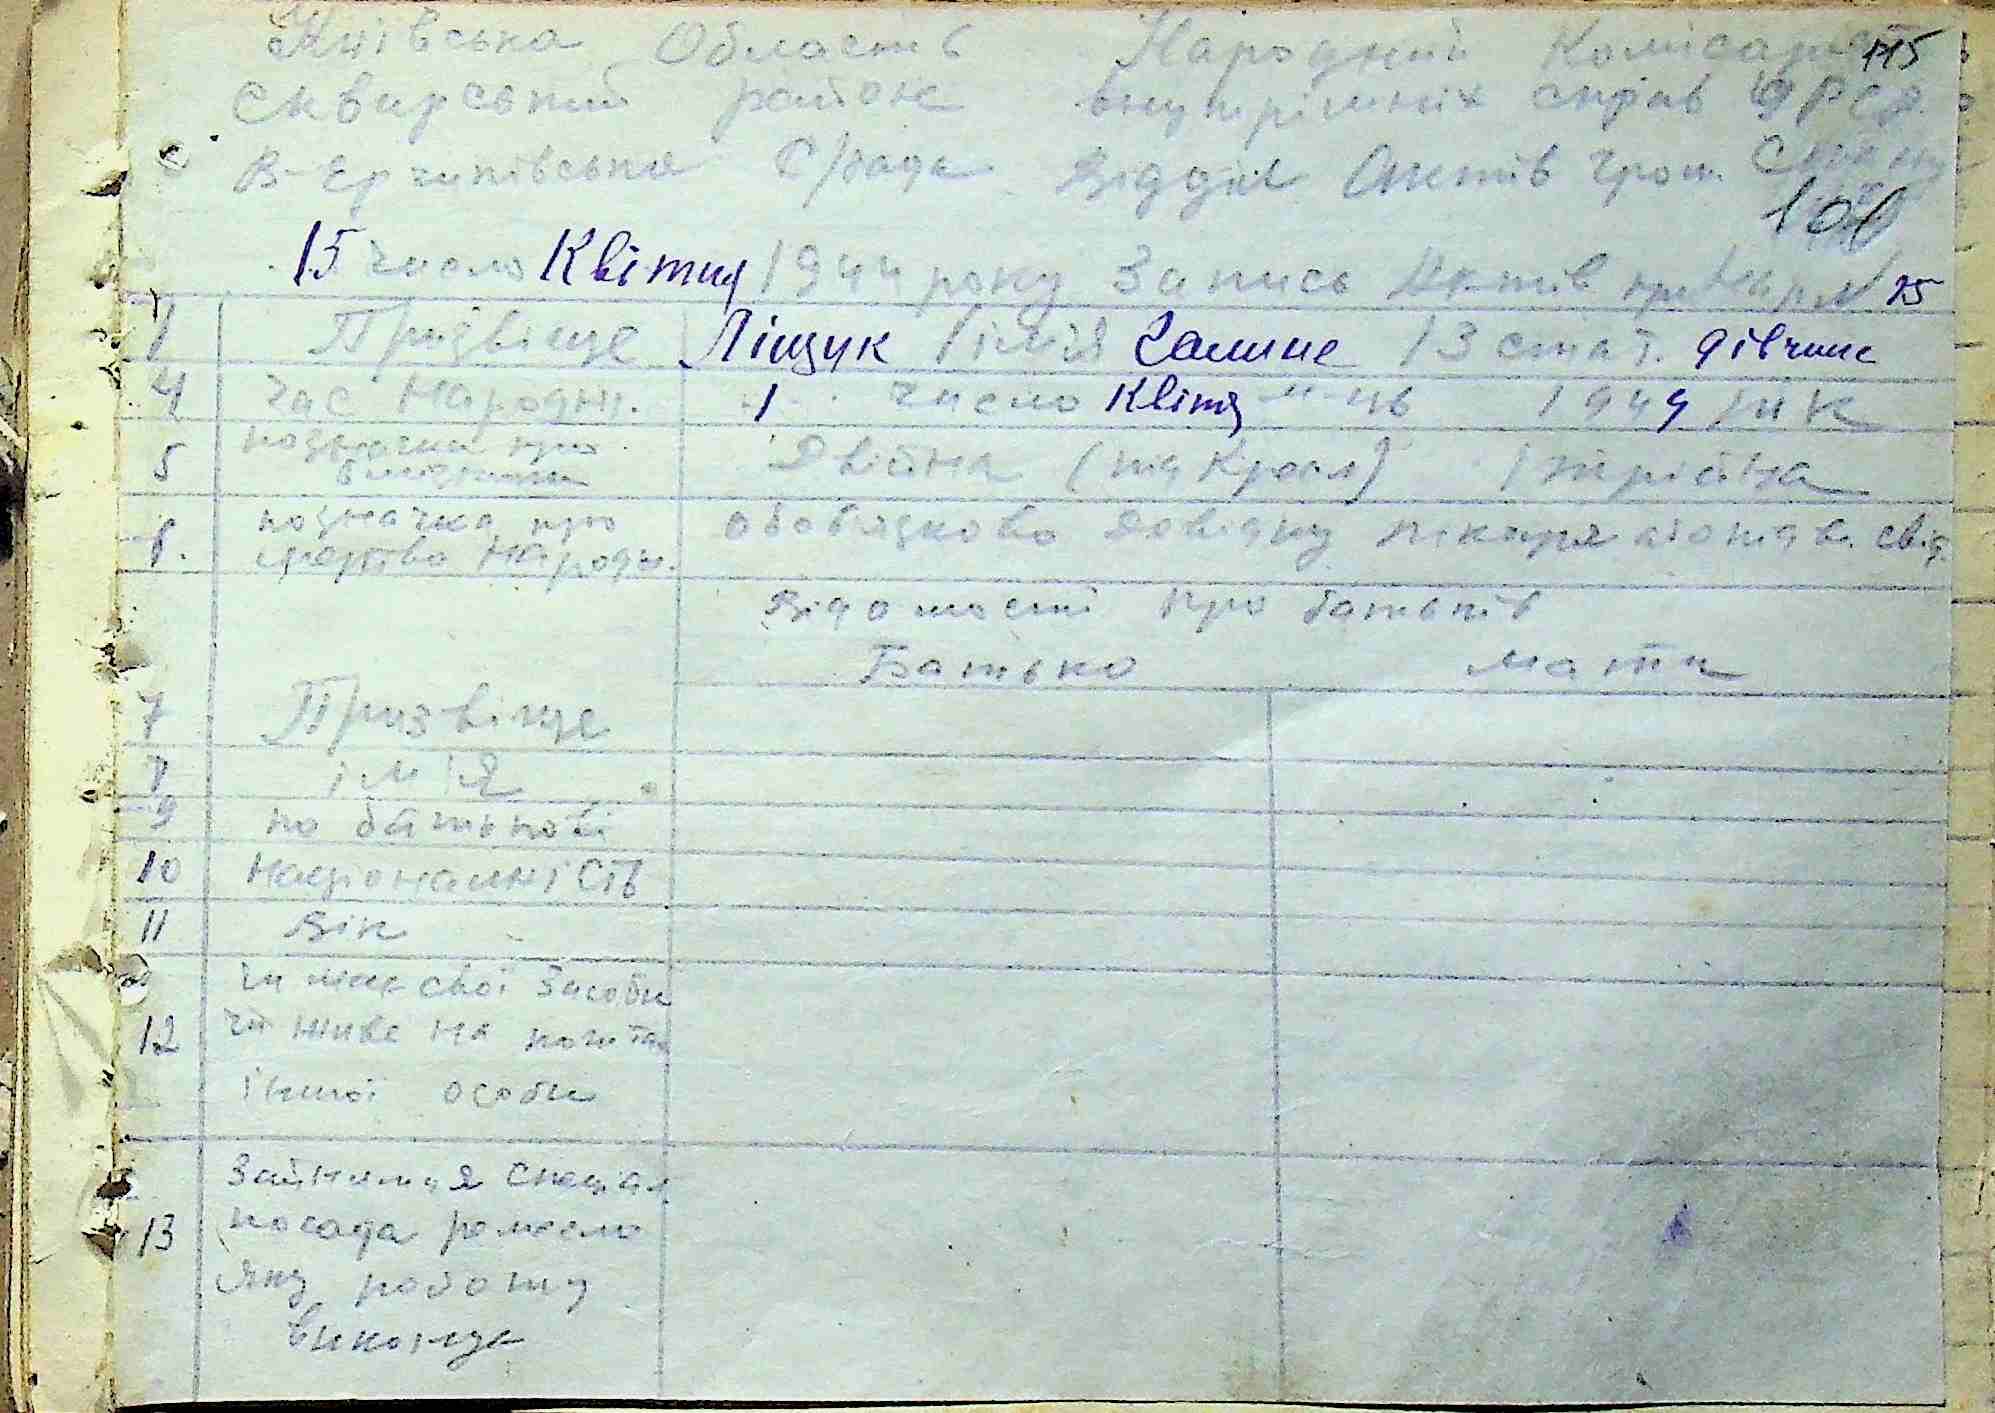 Київська Область Народний Комісаріат 115
Сквирський район внутрішніх справ УРСР
В-Єрчиківська С/рада Відділ Актів Гром. Стану
15 число Квітня 1944 року Запись Актів про № 15
1 Призвіще Ліщук / імʼя Галина / 3 стат. дівчина
4 час Народж. 1 число Квітя м-ць 1944 рік
5 позначка про близнят Двійна (підкресл) / трійна
6. позначка про мертво народж. обовʼязково довідку лікаря свід.
Відомості про батьків
Батько мати
7 Призвіще
8 імʼя
9 по батькові
10 Національність
11 Вік
чи має свої засоби
12 чи живе на кошта
іншої особи
Зайняття спеціал
13 посада ремесло
яку роботу
виконує